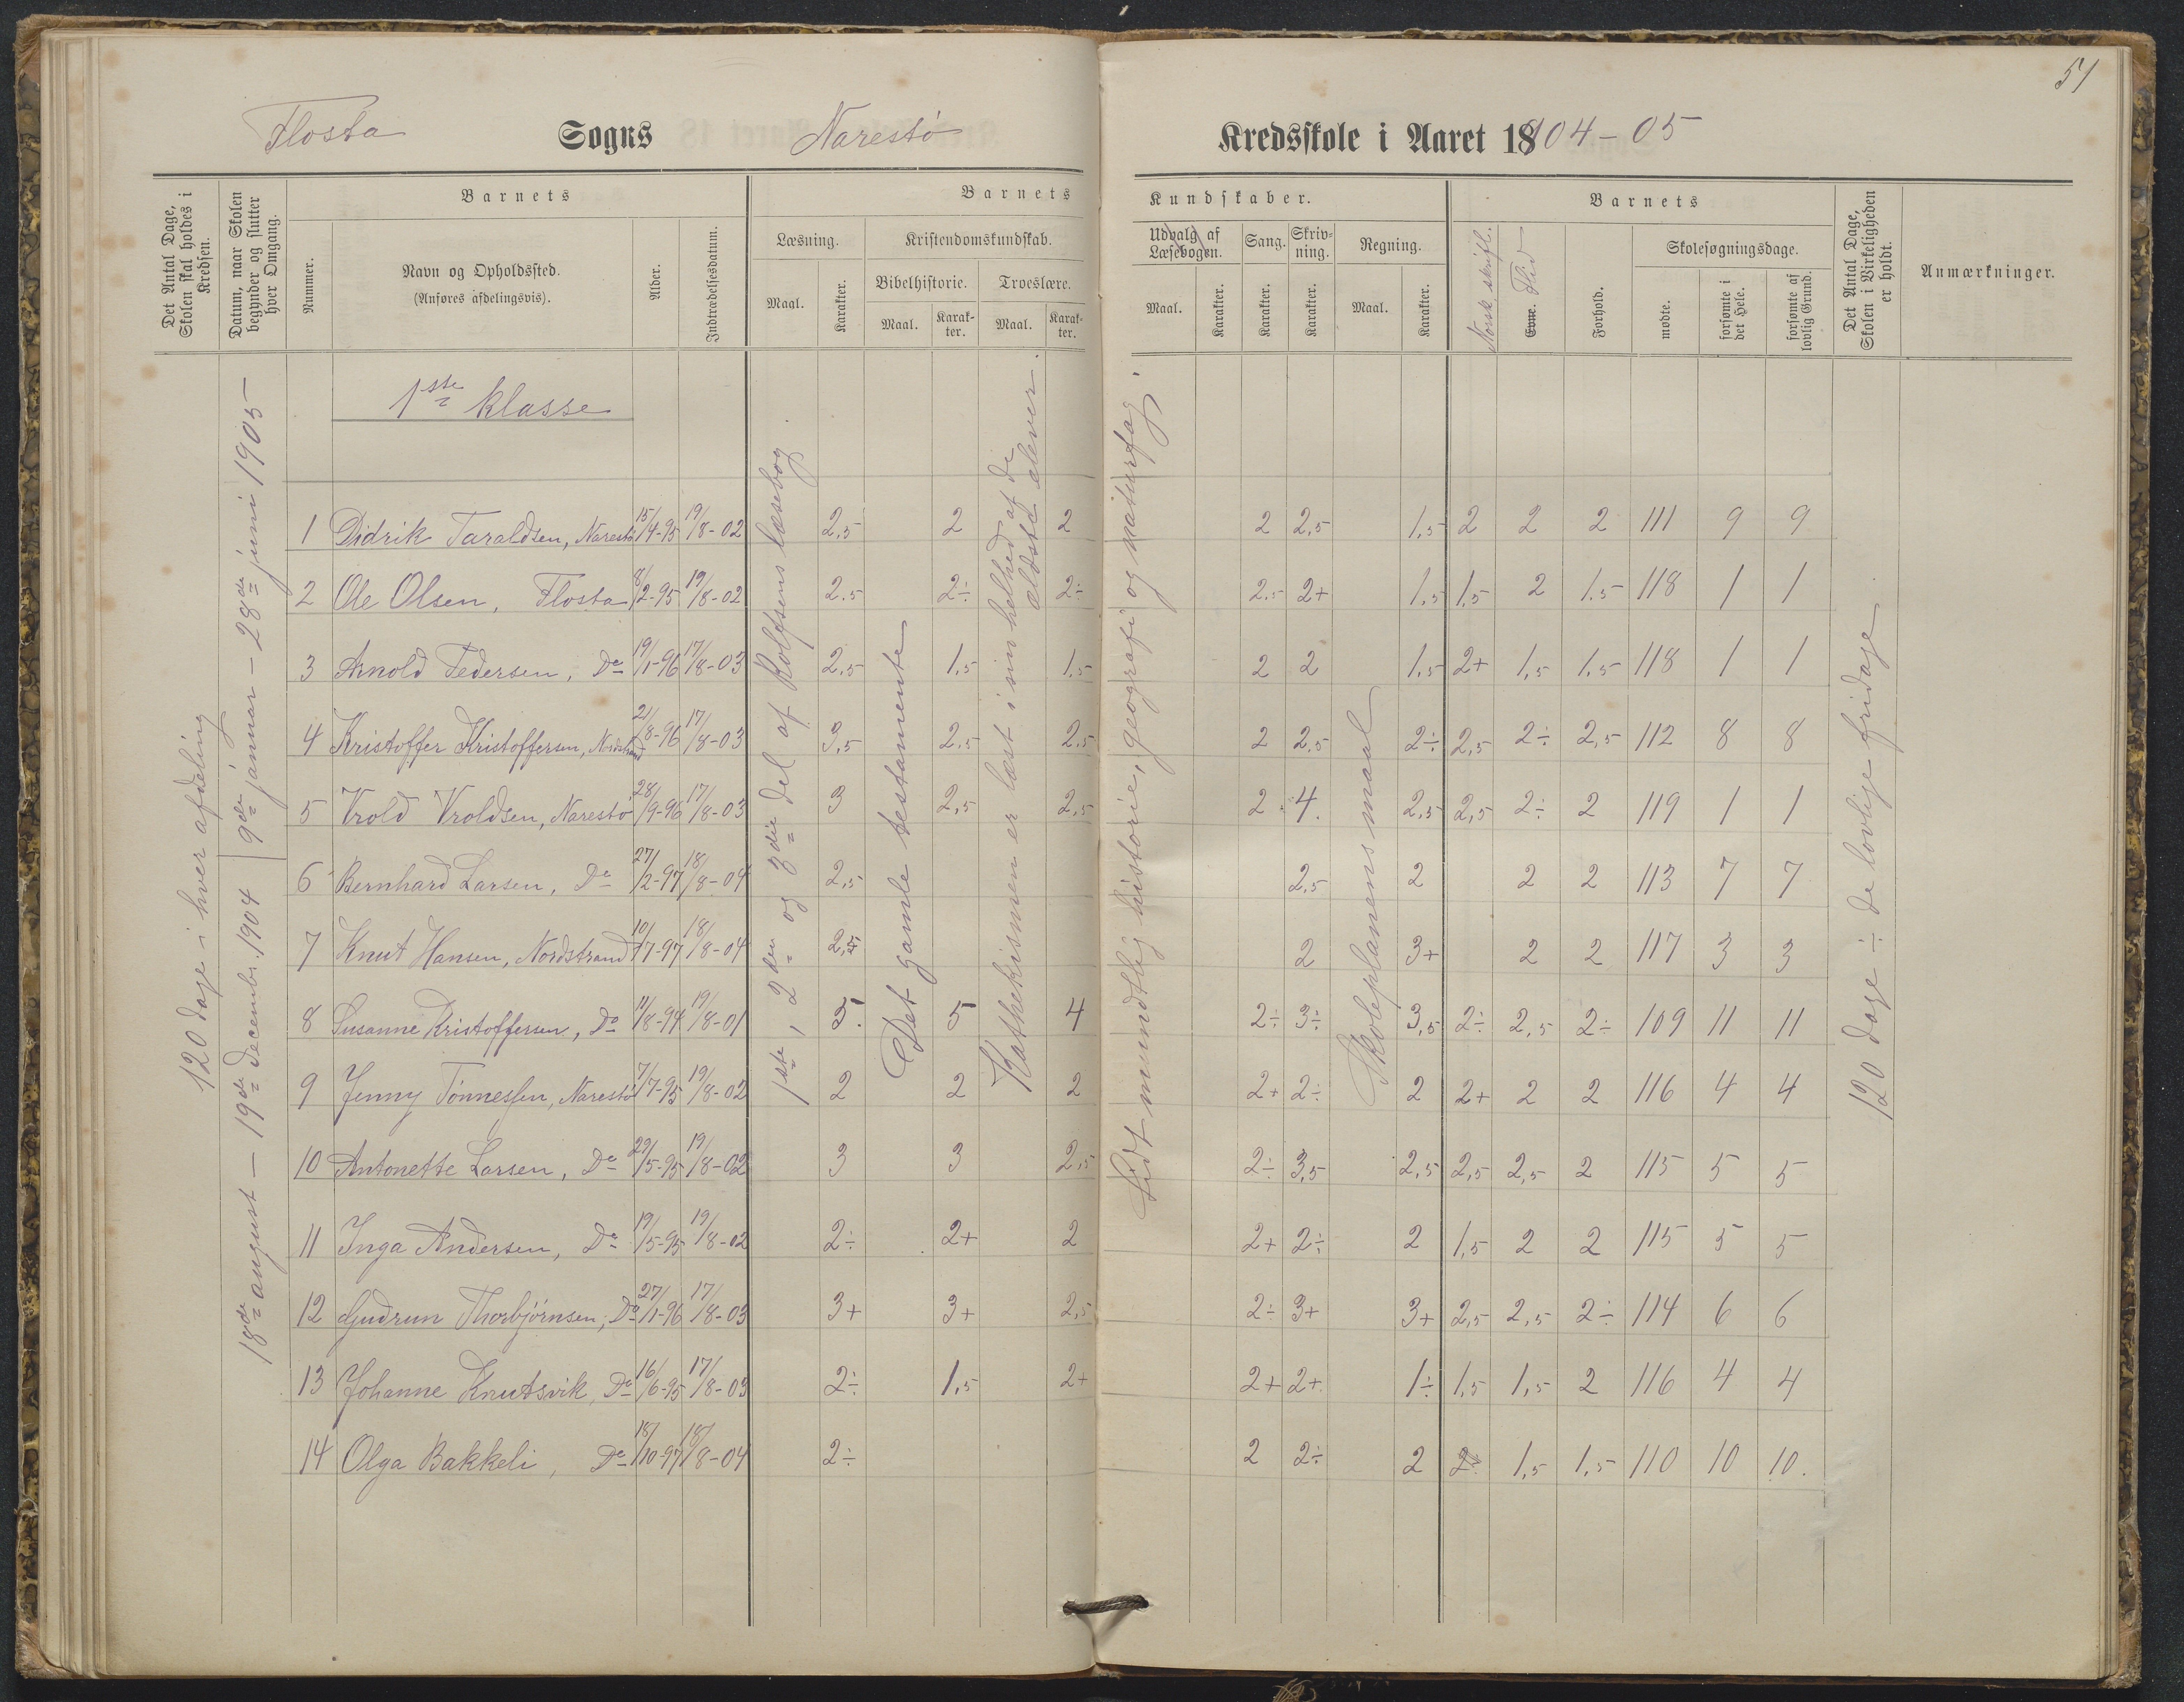 51
Flosta Sogns Narestø Kredsskole i Aaret 1904-05
Det Antal Dage, Skolen skal holdes i Kredsen.
Datum, naar Skolen begynder og slutter hver Omgang.
Nummer.
Barnets
Navn og Opholdssted.
(Anføres afdelingsvis).
Alder.
Indtrædelsesdatum.
Barnets Kundskaber.
Læsning.
Maal.
Karakter.
Kristendomskundskab.
Bibelhistorie.
Maal.
Karakter.
Troeslære.
Maal.
Karakter.
Udvalg af Læsebogen.
Maal.
Karakter.
Sang.
Karakter.
Skrivning.
Karakter.
Regning.
Maal.
Karakter.
Barnets
Norsk skriftl.
Evne. Flid
Forhold.
Skolesøgningsdage.
mødte.
forsømte i det Hele.
forsømte af lovlig Grund.
Det Antal Dage, Skolen i Virkeligheden er holdt.
Anmærkninger.
120 dage i hver afdeling
18de august – 19de decembr. 1904
9de januar – 28de juni 1905
1ste klasse
1ste, 2den og 3die del af Rolfsens læsebog.
Det gamle testamente
Kathekismen er læst i sin helhed af de ældste elever.
Lidt mundtlig historie, geografi og naturfag.
Skoleplanens maal
120 dage ÷ de lovlige fridage
1 Didrik Taraldsen, Narestø 15/4-95 19/8-02 2,5 2 2 2 2,5 1,5 2 2 2 111 9 9
2 Ole Olsen, Flosta 8/2-95 19/8-02 2.5 2÷ 2÷ 2.5 2+ 1,5 1,5 2 1.5 118 1 1
3 Arnold Pedersen, Do 19/1-96 17/8-03 2,5 1,5 1,5 2 2 1,5 2+ 1,5 1.5 118 1 1
4 Kristoffer Kristoffersen, Nordstrand 21/8-96 17/8-03 3,5 2.5 2.5 2 2.5 2÷ 2,5 2÷ 2,5 112 8 8
5 Vrold Vroldsen, Narestø 28/9-96 17/8-03 3 2,5 2,5 2 4. 2,5 2,5 2÷ 2 119 1 1
6 Bernhard Larsen, Do 27/2-97 18/8-04 2,5 2,5 2 2 2 113 7 7
7 Knut Hansen, Nordstrand 10/7-97 18/8-04 2,5 2 3+ 2 2 117 3 3
8 Susanne Kristoffersen, Do 11/8-94 19/8-01 3. 5 4 2÷ 3÷ 3,5 2÷ 2,5 2÷ 109 11 11
9 Jenny Tønnessen, Narestø 7/7-95 19/8-02 2 2 2 2+ 2÷ 2 2+ 2 2 116 4 4
10 Antonette Larsen, Do 29/5-95 19/8-02 3 3 2,5 2÷ 3,5 2,5 2,5 2,5 2 115 5 5
11 Inga Andersen, Do 19/5-95 19/8-02 2÷ 2+ 2 2+ 2÷ 2 1,5 2 2 115 5 5
12 Gudrun Thorbjørnsen, Do 27/1-96 17/8-03 3+ 3+ 2,5 2÷ 3+ 3+ 2,5 2,5 2÷ 114 6 6
13 Johanne Knutsvik, Do 16/6-95 17/8-03 2÷ 1,5 2+ 2+ 2+ 1÷ 1,5 1,5 2 116 4 4
14 Olga Bakkeli, Do 18/10-97 18/8-04 2÷ 2 2÷ 2 1,5 1,5 110 10 10.